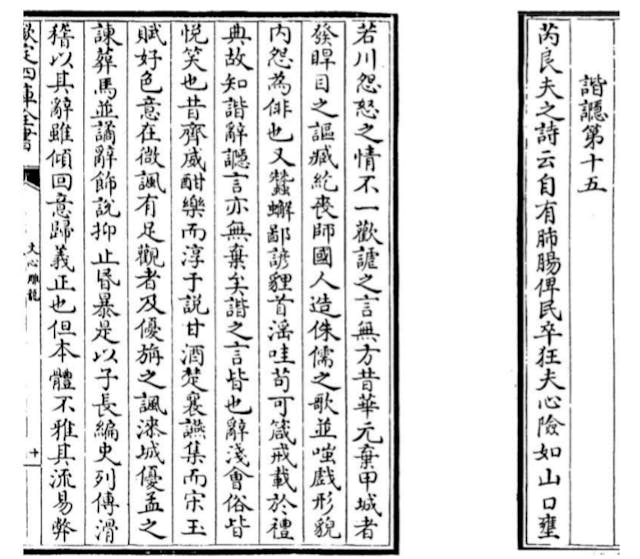 諧讔第十五
芮良夫之詩云自有肺腸俾民卒狂夫心險如山口壅
若川怨怒之情不一歡謔之言無方昔華元棄甲城者
發睅目之謳臧紇喪師國人造侏儒之歌並嗤戲形貌
內怨為俳也又蠶蠏鄙諺貍首淫哇苟可箴戒載於禮
典故知諧辭讔言亦無棄矣諧之言皆也辭淺會俗皆
悅笑也昔齊威酣樂而淳于說甘酒楚襄讌集而宋玉
賦好色意在微諷有足觀者及優旃之諷漆城優孟之
諫葬馬並譎辭飾說抑止昏暴是以子長編史列傳滑
稽以其辭雖傾回意歸義正也但本體不雅其流易弊
欽定四庫全書
文心雕龍
十